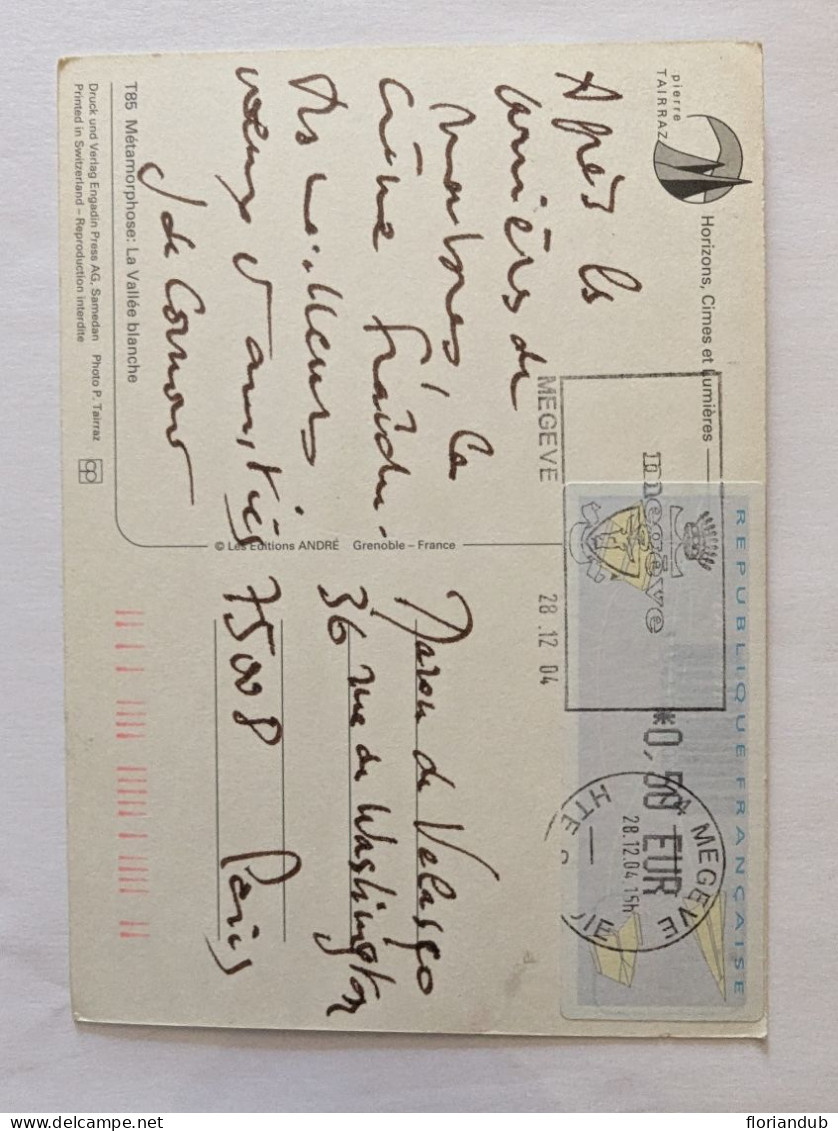 pierre
TAIRRAZ
Horizons, Cimes et Lumières
Après la
lumière de
la
cime
meilleurs
vœux d'amitiés
J de
T85 Métamorphose: La Vallée blanche
Druck und Verlag Engadin Press AG, Samedan Photo P. Tairraz
Printed in Switzerland – Reproduction interdite
© Les Editions ANDRÉ Grenoble – France
MEGEVE 28.12 04
megève
REPUBLIQUE FRANÇAISE
*0,50 EUR
MEGEVE
28.12.04.15h
HTE
de Velasco
36 rue de Washington
75008 Paris
floriandub